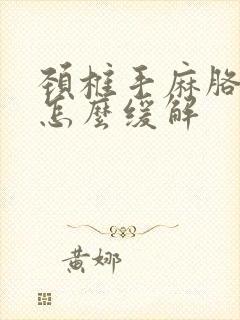 頸椎手麻胳
怎麼缓解
黄娜